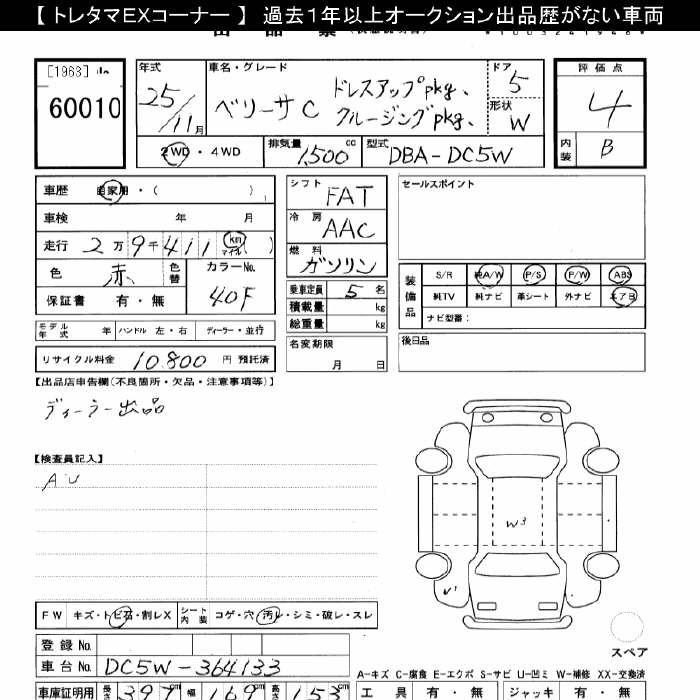 【 トレタマEXコーナー 】 過去1年以上オークション出品歴がない車両
[1963]
60010
年式
25/11月
車名・グレード
ベリーサ C
ドレスアップpkg、
クルージングpkg、
ドア
5
形状
W
評価点
4
内装
B
2WD・4WD
排気量
1,500 cc
型式
DBA-DC5W
車歴 自家用・( )
車検 年 月
走行 2万9千411 km マイル( )
色 赤 色替 カラーNo. 40F
保証書 有・無
シフト
FAT
冷房
AAC
燃料
ガソリン
乗車定員 5 名
積載量 kg
総重量 kg
セールスポイント
装備品
S/R 純A/W P/S P/W ABS
純TV 純ナビ 革シート 外ナビ エアB
ナビ型番:
モデル年式 年 ハンドル 左・右 ディーラー・並行
名変期限
月 日
後日品
リサイクル料金 10,800 円 預託済
【出品店申告欄(不良箇所・欠品・注意事項等)】
ディーラー出品
【検査員記入】
AU
W3
V1
FW キズ・トビ石・割レX シート内装 コゲ・穴・汚レ・シミ・破レ・スレ
スペア
登録 No.
車台 No. DC5W-364133
A-キズ C-腐食 E-エクボ S-サビ U-凹ミ W-補修 XX-交換済
車庫証明用 長さ 397 cm 幅 169 cm 高さ 153 cm
工具 有・無 ジャッキ 有・無